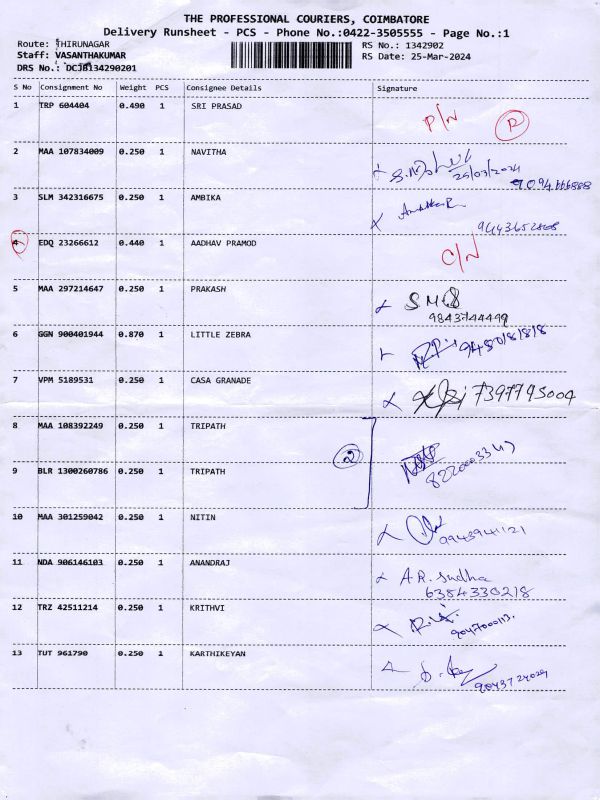 THE PROFESSIONAL COURIERS, COIMBATORE
Delivery Runsheet - PCS - Phone No.:0422-3505555 - Page No.:1
Route: THIRUNAGAR RS No.: 1342902
Staff: VASANTHAKUMAR RS Date: 25-Mar-2024
DRS No.: DCJB134290201
S No Consignment No Weight PCS Consignee Details Signature
1 TRP 604404 0.490 1 SRI PRASAD
P/N R
2 MAA 107834009 0.250 1 NAVITHA
25/03/2024
9094666888
3 SLM 342316675 0.250 1 AMBIKA
9443652868
4 EDQ 23266612 0.440 1 AADHAV PRAMOD
C/N
5 MAA 297214647 0.250 1 PRAKASH
9843744499
6 GGN 900401944 0.870 1 LITTLE ZEBRA
7 VPM 5189531 0.250 1 CASA GRANADE
7397795004
8 MAA 108392249 0.250 1 TRIPATH
2
9 BLR 1300260786 0.250 1 TRIPATH
10 MAA 301259042 0.250 1 NITIN
9943941121
11 NDA 906146103 0.250 1 ANANDRAJ
A.R. Sudha
6384330218
12 TRZ 42511214 0.250 1 KRITHVI
13 TUT 961790 0.250 1 KARTHIKEYAN